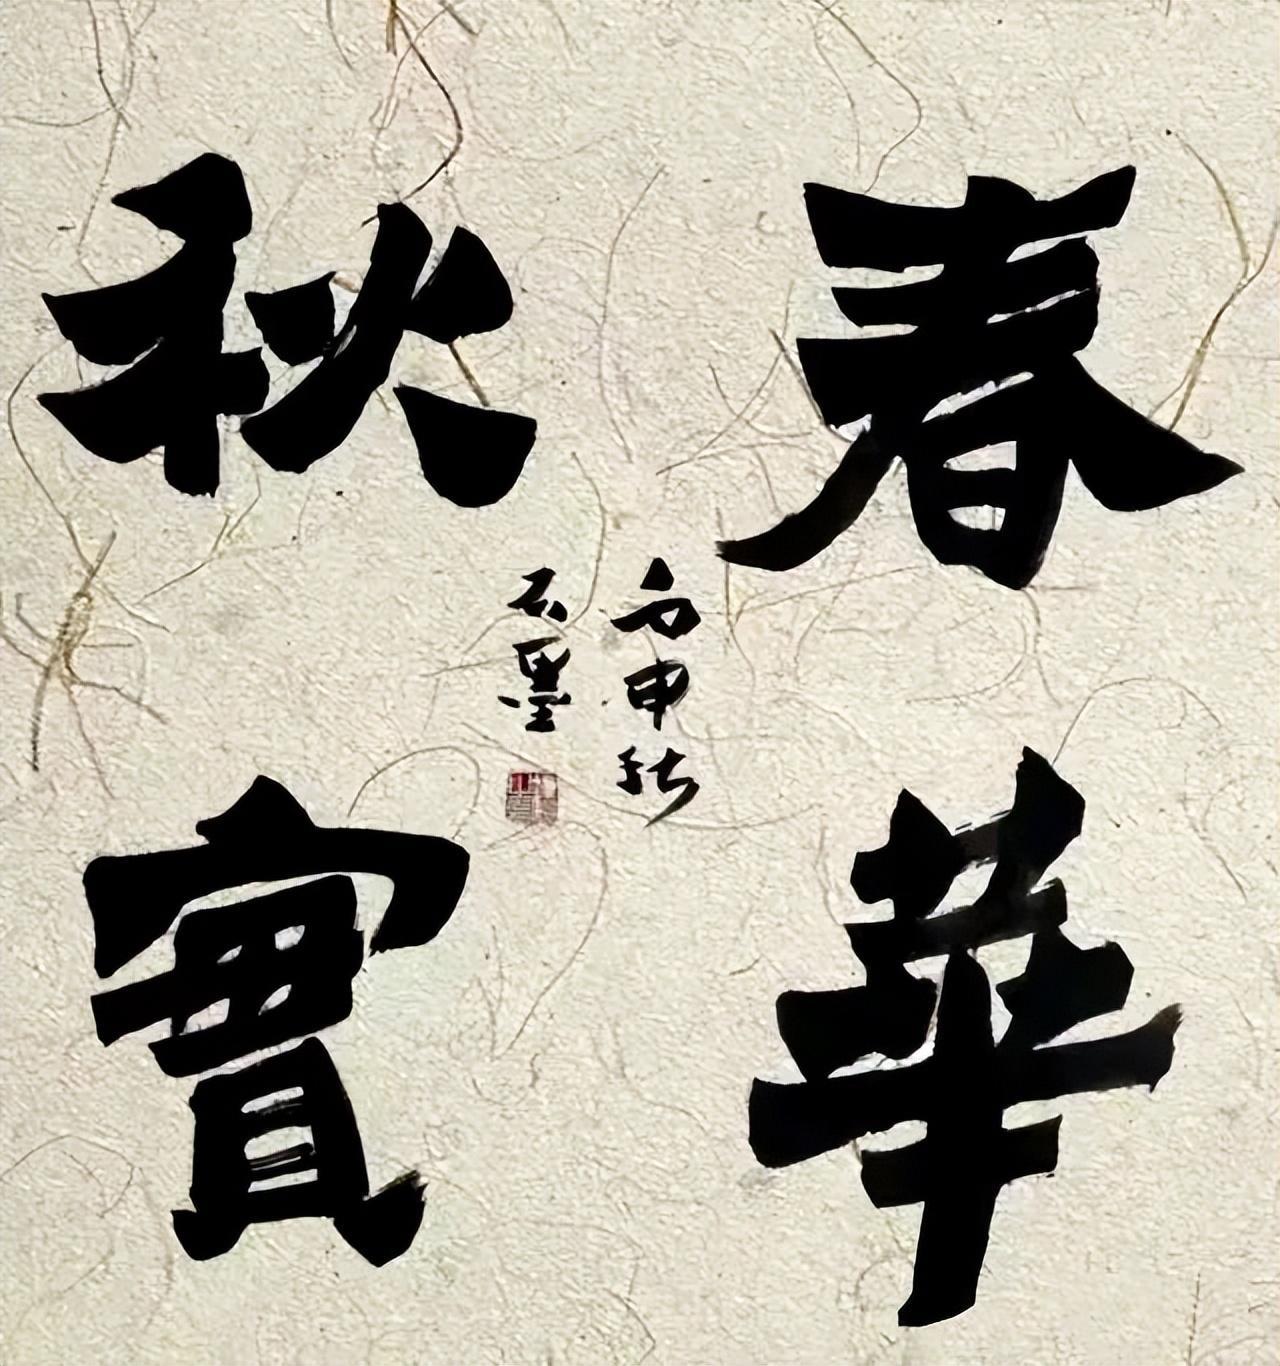 春華
秋實
丙申秋
石墨